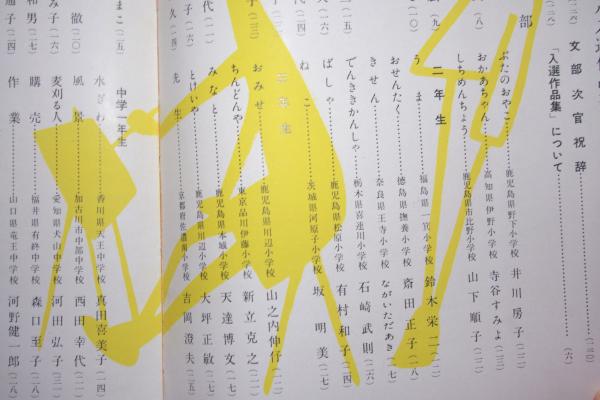 文部次官祝辞……(六)
「入選作品集」について
部
ぶたのおやこ……鹿児島県野下小学校 井川房子
おかあちゃん……高知県伊野小学校 寺谷すみよ
しろめんちょう……鹿児島県市比野小学校 山下順子
二年生
うま……福島県一箕小学校 鈴木栄二
おせんたく……徳島県撫養小学校 斎田正子(一八)
きせん……奈良県王寺小学校 ながいただあき(一七)
でんききかんしゃ……栃木県喜連川小学校 石崎武則(一六)
ばしゃ……鹿児島県松原小学校 有村和子(一四)
ねこ……茨城県河原子小学校 坂明美(一七)
三年生
おみせ……鹿児島県川辺小学校 山之内伸伃
ちんどんや……東京品川伊藤小学校 新立克之(一一)
みなと……鹿児島県本城小学校 天達博文(一七)
とけいや……鹿児島県川辺小学校 大坪正敏(一七)
先生……京都府佐濃南小学校 吉岡澄夫(一五)
中学一年生
水ぎわ……香川県天王中学校 真田喜美子(一四)
風景……加古川市中部中学校 西田幸代(二一)
麦刈る人……愛知県犬山中学校 河田弘子(二三)
購売……福井県有終中学校 森口至子(二八)
作業……山口県竜王中学校 河野健一郎(二八)